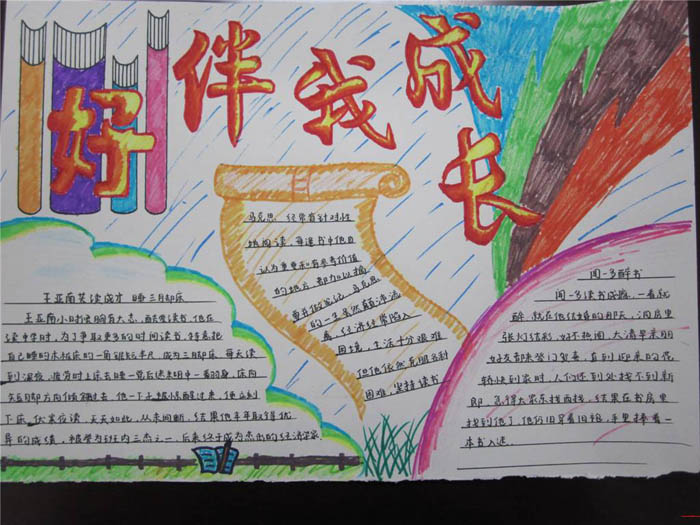 好伴我成长
王亚南苦读成才 睡三月却床
王亚南小时候胸有大志,酷爱读书,他在
读中学时,为了争取更多的时间读书,特意把
自己睡的木板床的一角锯短半尺,成为三脚床,每天读
到深夜,疲劳时上床去睡一觉后迷糊中一翻身,床向
短脚方向倾斜过去,他一下子被惊醒过来,便立刻
下床,伏案夜读,天天如此,从未间断,结果他年年取得优
异的成绩,被誉为班内三杰之一,后来终于成为杰出的经济学家
马克思 经常有针对性
地阅读,每逢书中他自
认为重要和有参考价值
的地方 都加以摘
困境,生活十分艰难
但他依然克服各种
困难,坚持读书
闻一多醉书
闻一多读书成瘾,一看就
醉,就在他结婚的那天,洞房里
张灯结彩,好不热闹,大清早亲朋
好友都来登门贺喜,直到迎亲的花
轿快到家时,人们还到处找不到新
郎,急得大家东找西找,结果在书房里
找到了他,他仍旧穿着旧袍,手里捧着一
本书入迷.